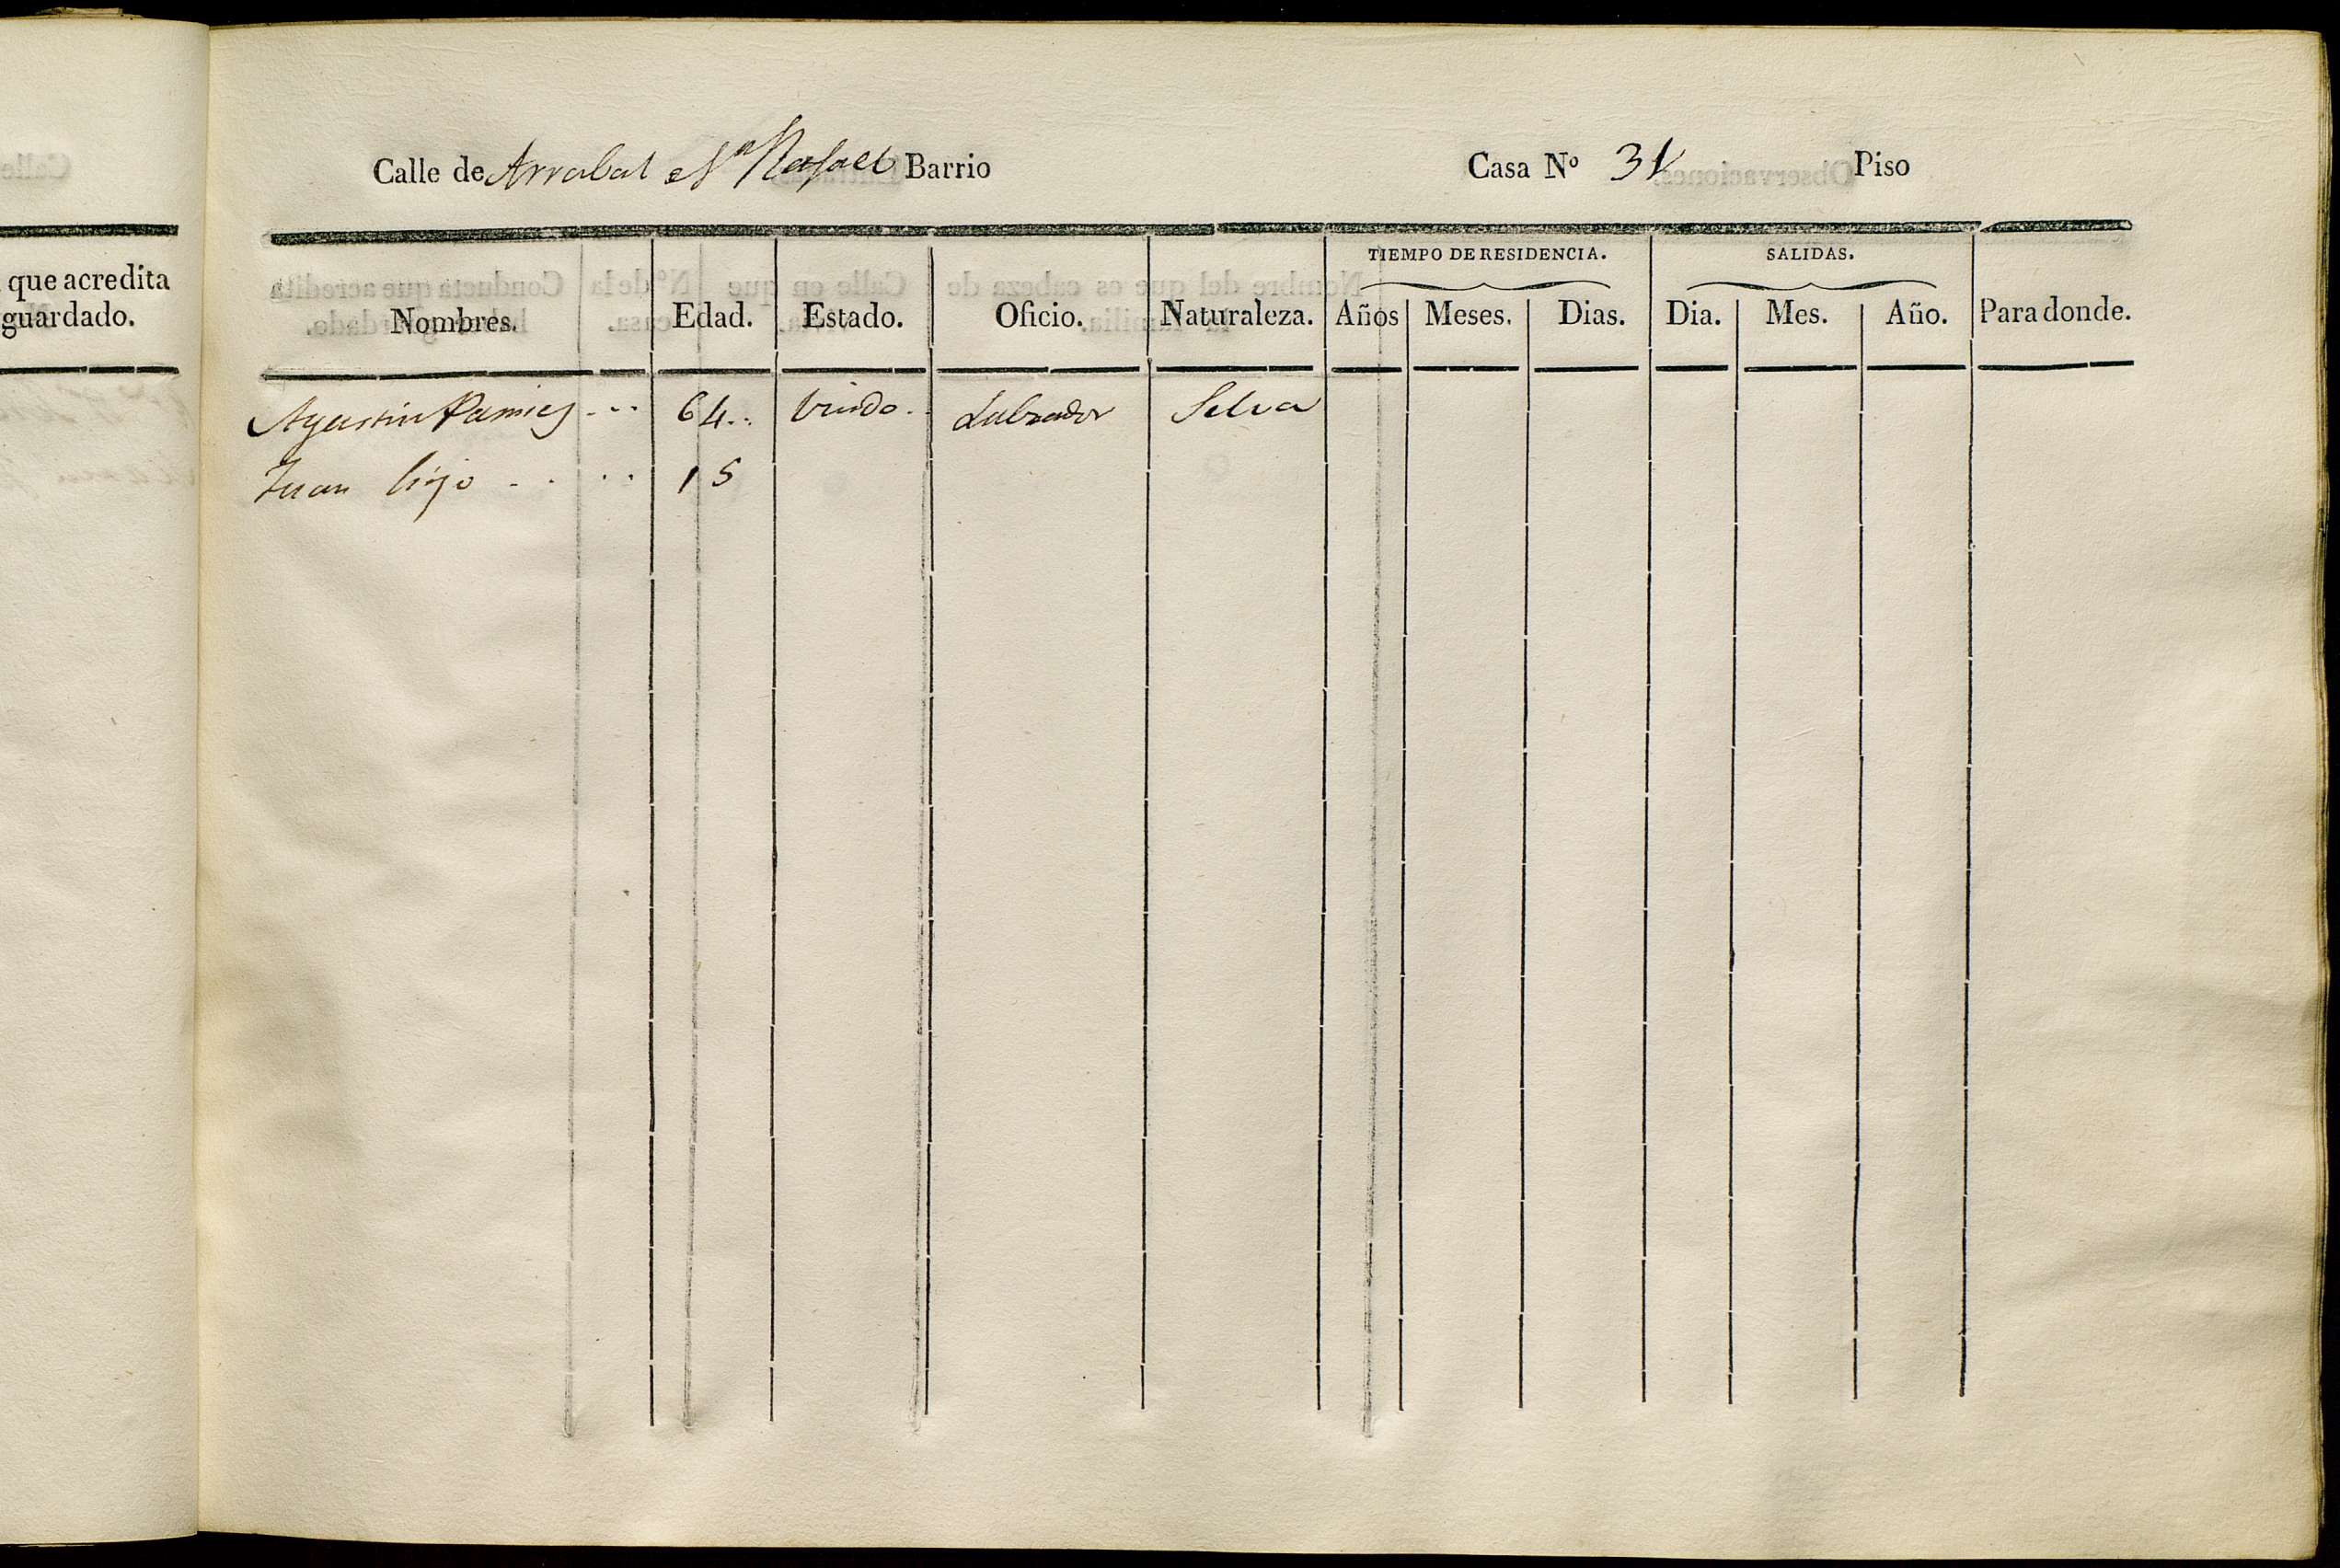 que acredita
guardado.
Calle de Arrabal Sn Rafael Barrio Casa Nº 31 Piso
TIEMPO DE RESIDENCIA. SALIDAS.
Nombres. Edad. Estado. Oficio. Naturaleza. Años Meses. Dias. Dia. Mes. Año. Para donde.
Agustin Pamies 64.. Viudo.. Labrador Selva
Juan hijo 15